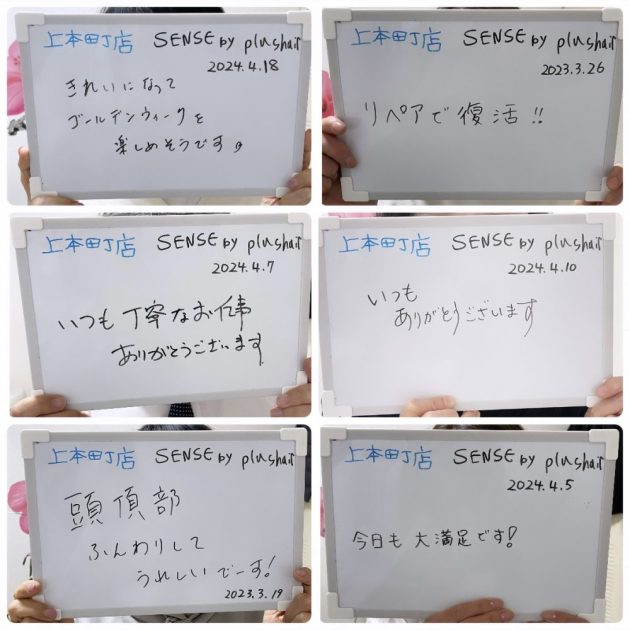 上本町店 SENSE by plushair
2024.4.18
きれいになって
ゴールデンウィークを
楽しめそうです。
上本町店 SENSE by plushair
2023.3.26
リペアで復活!!
上本町店 SENSE by plushair
2024.4.7
いつも丁寧なお仕事
ありがとうございます
上本町店 SENSE by plushair
2024.4.10
いつも
ありがとうございます
上本町店 SENSE by plushair
頭頂部
ふんわりして
うれしいでーす!
2023.3.19
上本町店 SENSE by plushair
2024.4.5
今日も大満足です!